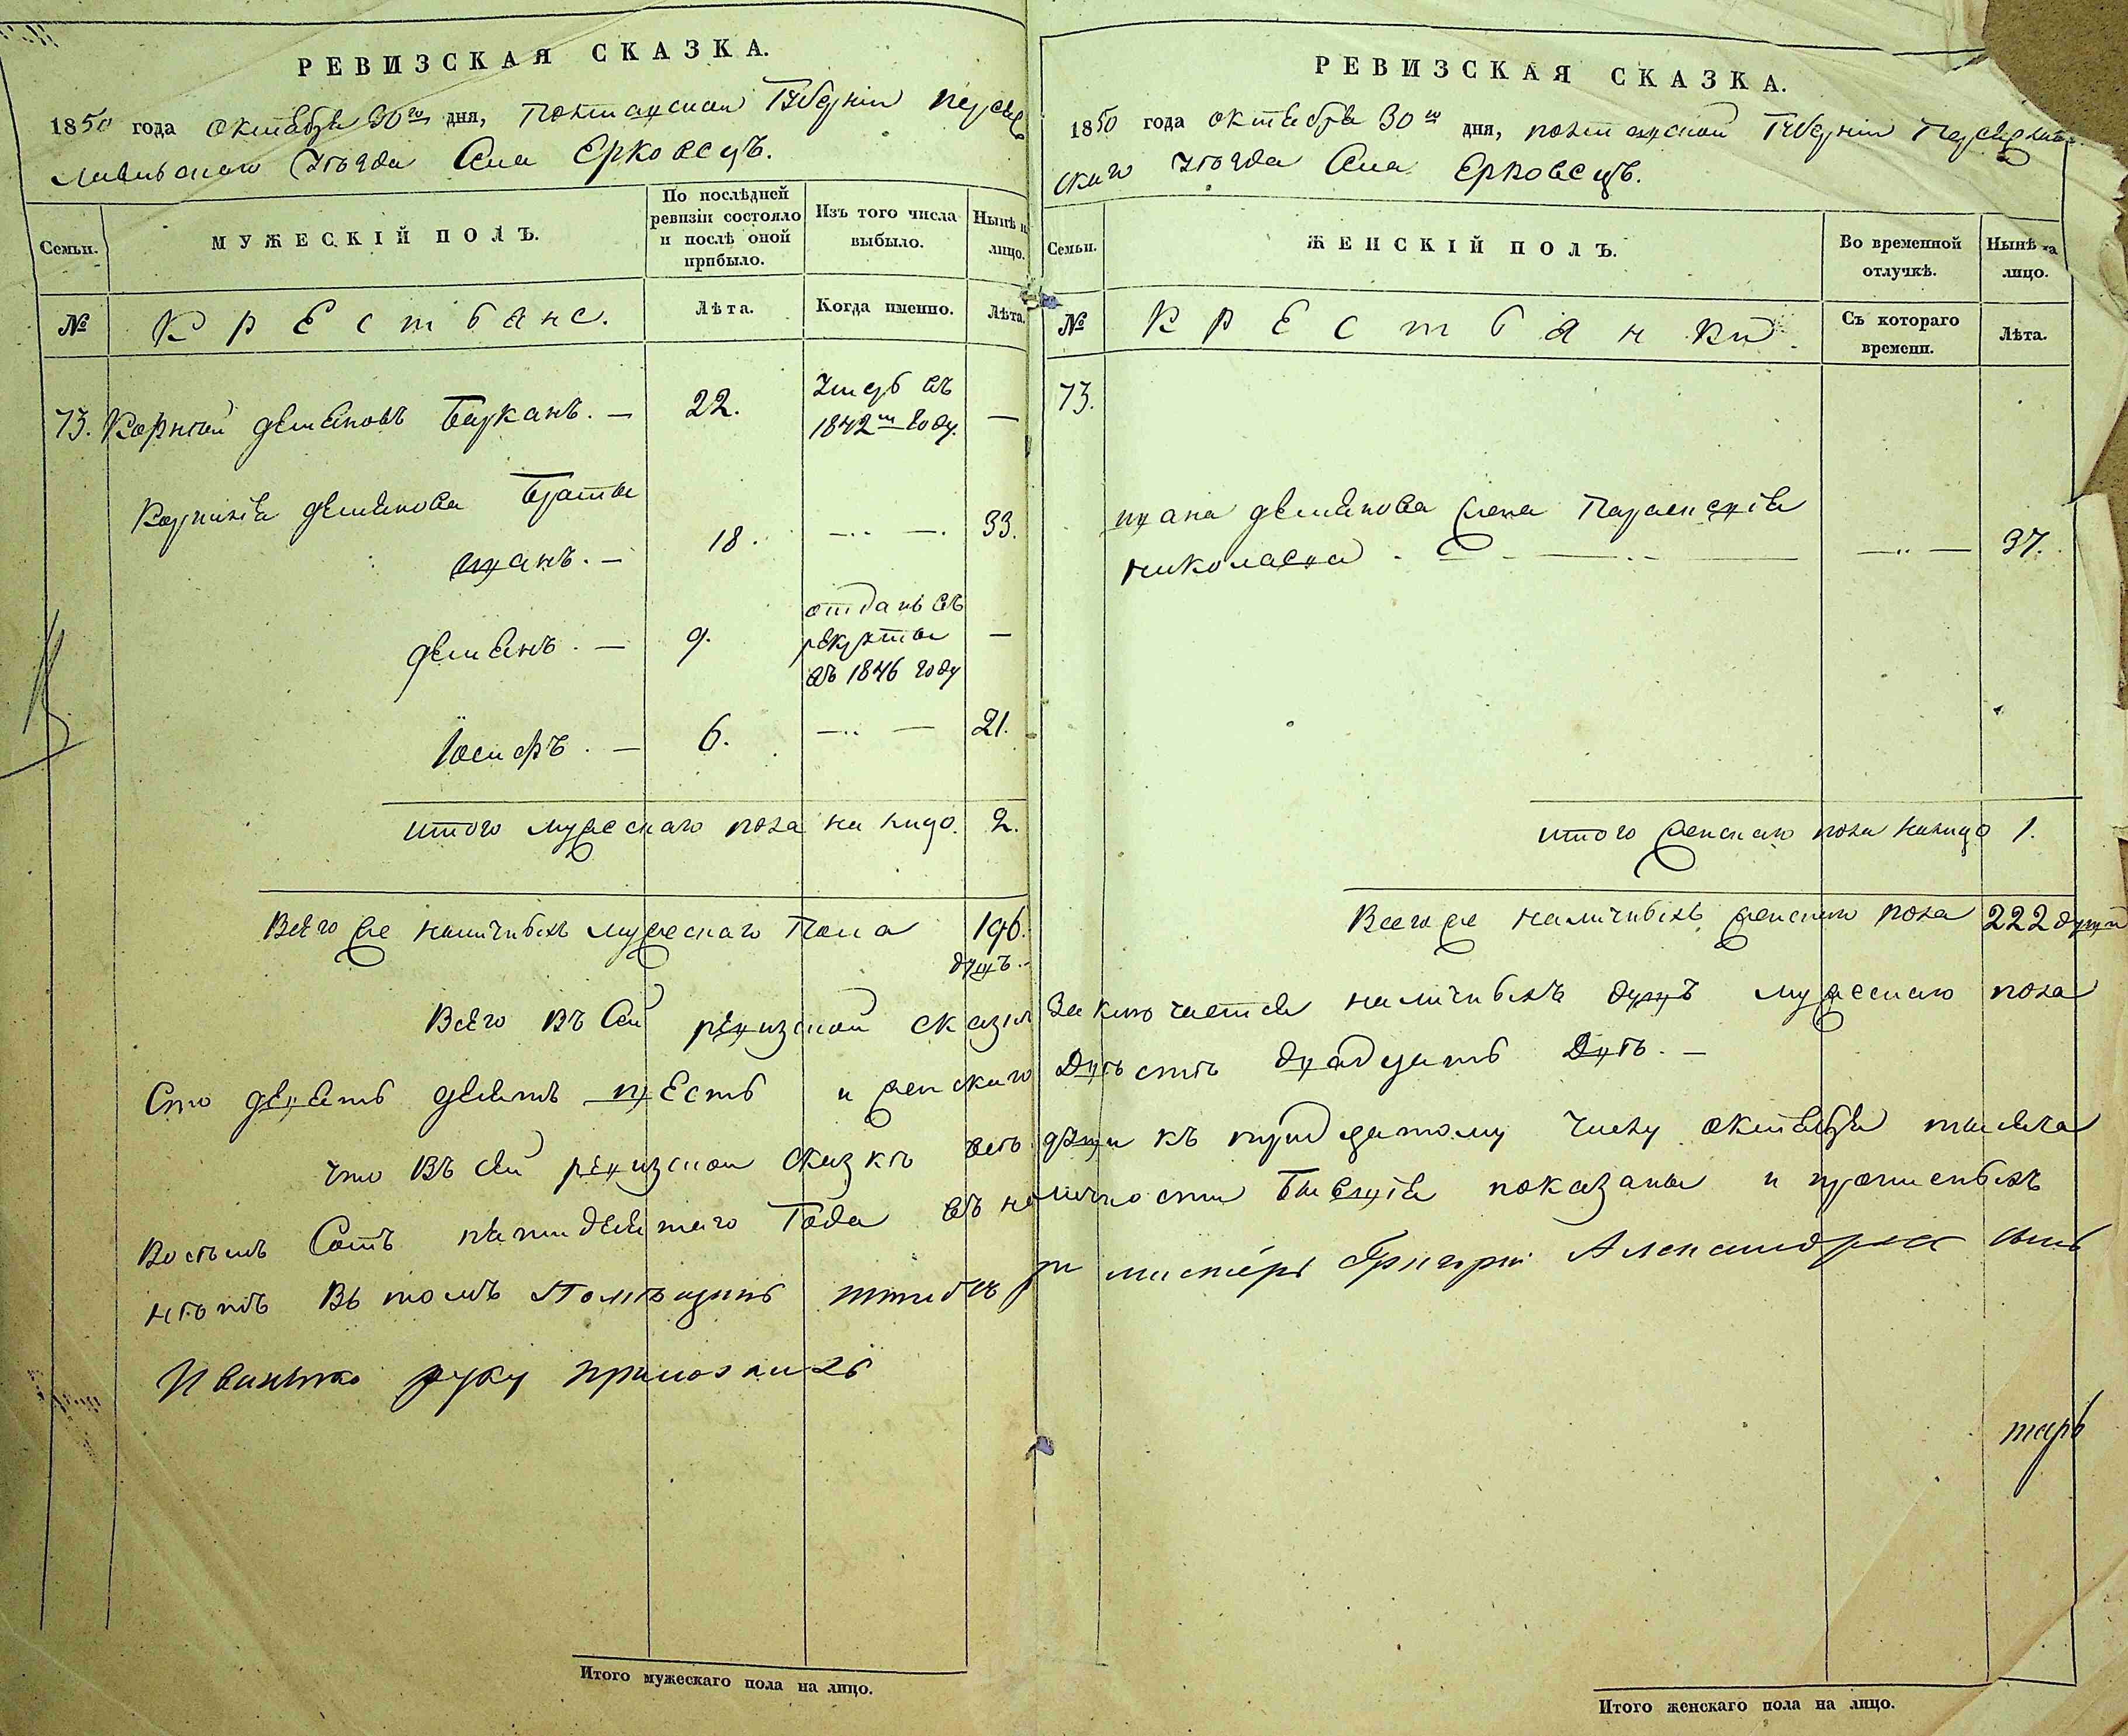 РЕВИЗСКАЯ СКАЗКА.
1850 года октября 30го дня, Полтавской Губерніи Переяс
лавльскаго Уѣзда Села Ерковецъ.
Семьи.
МУЖЕСКІЙ ПОЛЪ.
По послѣдней
ревизіи состояло
и послѣ оной
прибыло.
Изъ того числа
выбыло.
Нынѣ н
лицо.
№
Крестьяне.
Лѣта.
Когда именно.
Лѣта.
73. Корней Демяновъ Баканъ. — 22. Умеръ въ
1842м году. —
Корнѣя Демянова Братья
Иванъ. — 18. — 33.
Демянъ. — 9. отданъ въ
рекруты
въ 1846 году —
Іосифъ. — 6. — 21.
итого мужескаго пола на лицо. 2.
Всего же наличныхъ мужескаго Пола 196.
душъ.
Итого мужескаго пола на лицо.
РЕВИЗСКАЯ СКАЗКА.
1850 года октября 30го дня, Полтавской Губерніи
скаго Уѣзда Села Ерковецъ.
Семьи.
ЖЕНСКІЙ ПОЛЪ.
Во временной
отлучкѣ.
Нынѣ на
лицо.
№
Крестьянки.
Съ котораго
времени.
Лѣта.
73.
Ивана Демянова жена Параскевія
Николаева — 37.
итого женскаго пола налицо 1.
Всего же наличныхъ женскаго пола 222 души
Всего въ сей ревизской сказкѣ заключается наличныхъ душъ мужескаго пола
Сто девять десятъ шесть и женскаго Двѣсти двадцать двѣ. —
что въ сей ревизской сказкѣ всѣ души къ тридцатому числу октября тысяча
восѣмъ Сотъ пятидесятаго Года въ наличности бывшія показаны и прописныхъ
нѣтъ въ томъ Помѣщикъ Григорій Александровъ сынъ
руку приложилъ
Итого женскаго пола на лицо.